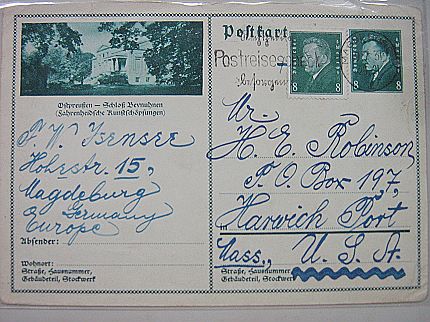 Postkarte
Postreisescheck
besorgen
8
8
Ostpreußen – Schloß Beynuhnen
(Fahrenheidsche Kunstschöpfungen)
F. W. Isensee
Hohestr. 15,
Magdeburg
Germany
Europe
Absender:
Wohnort:
Straße, Hausnummer,
Gebäudeteil, Stockwerk
Mr.
H. E. Robinson
P. O. Box 197,
Harwich Port
Mass., U. S. A.
Straße, Hausnummer,
Gebäudeteil, Stockwerk